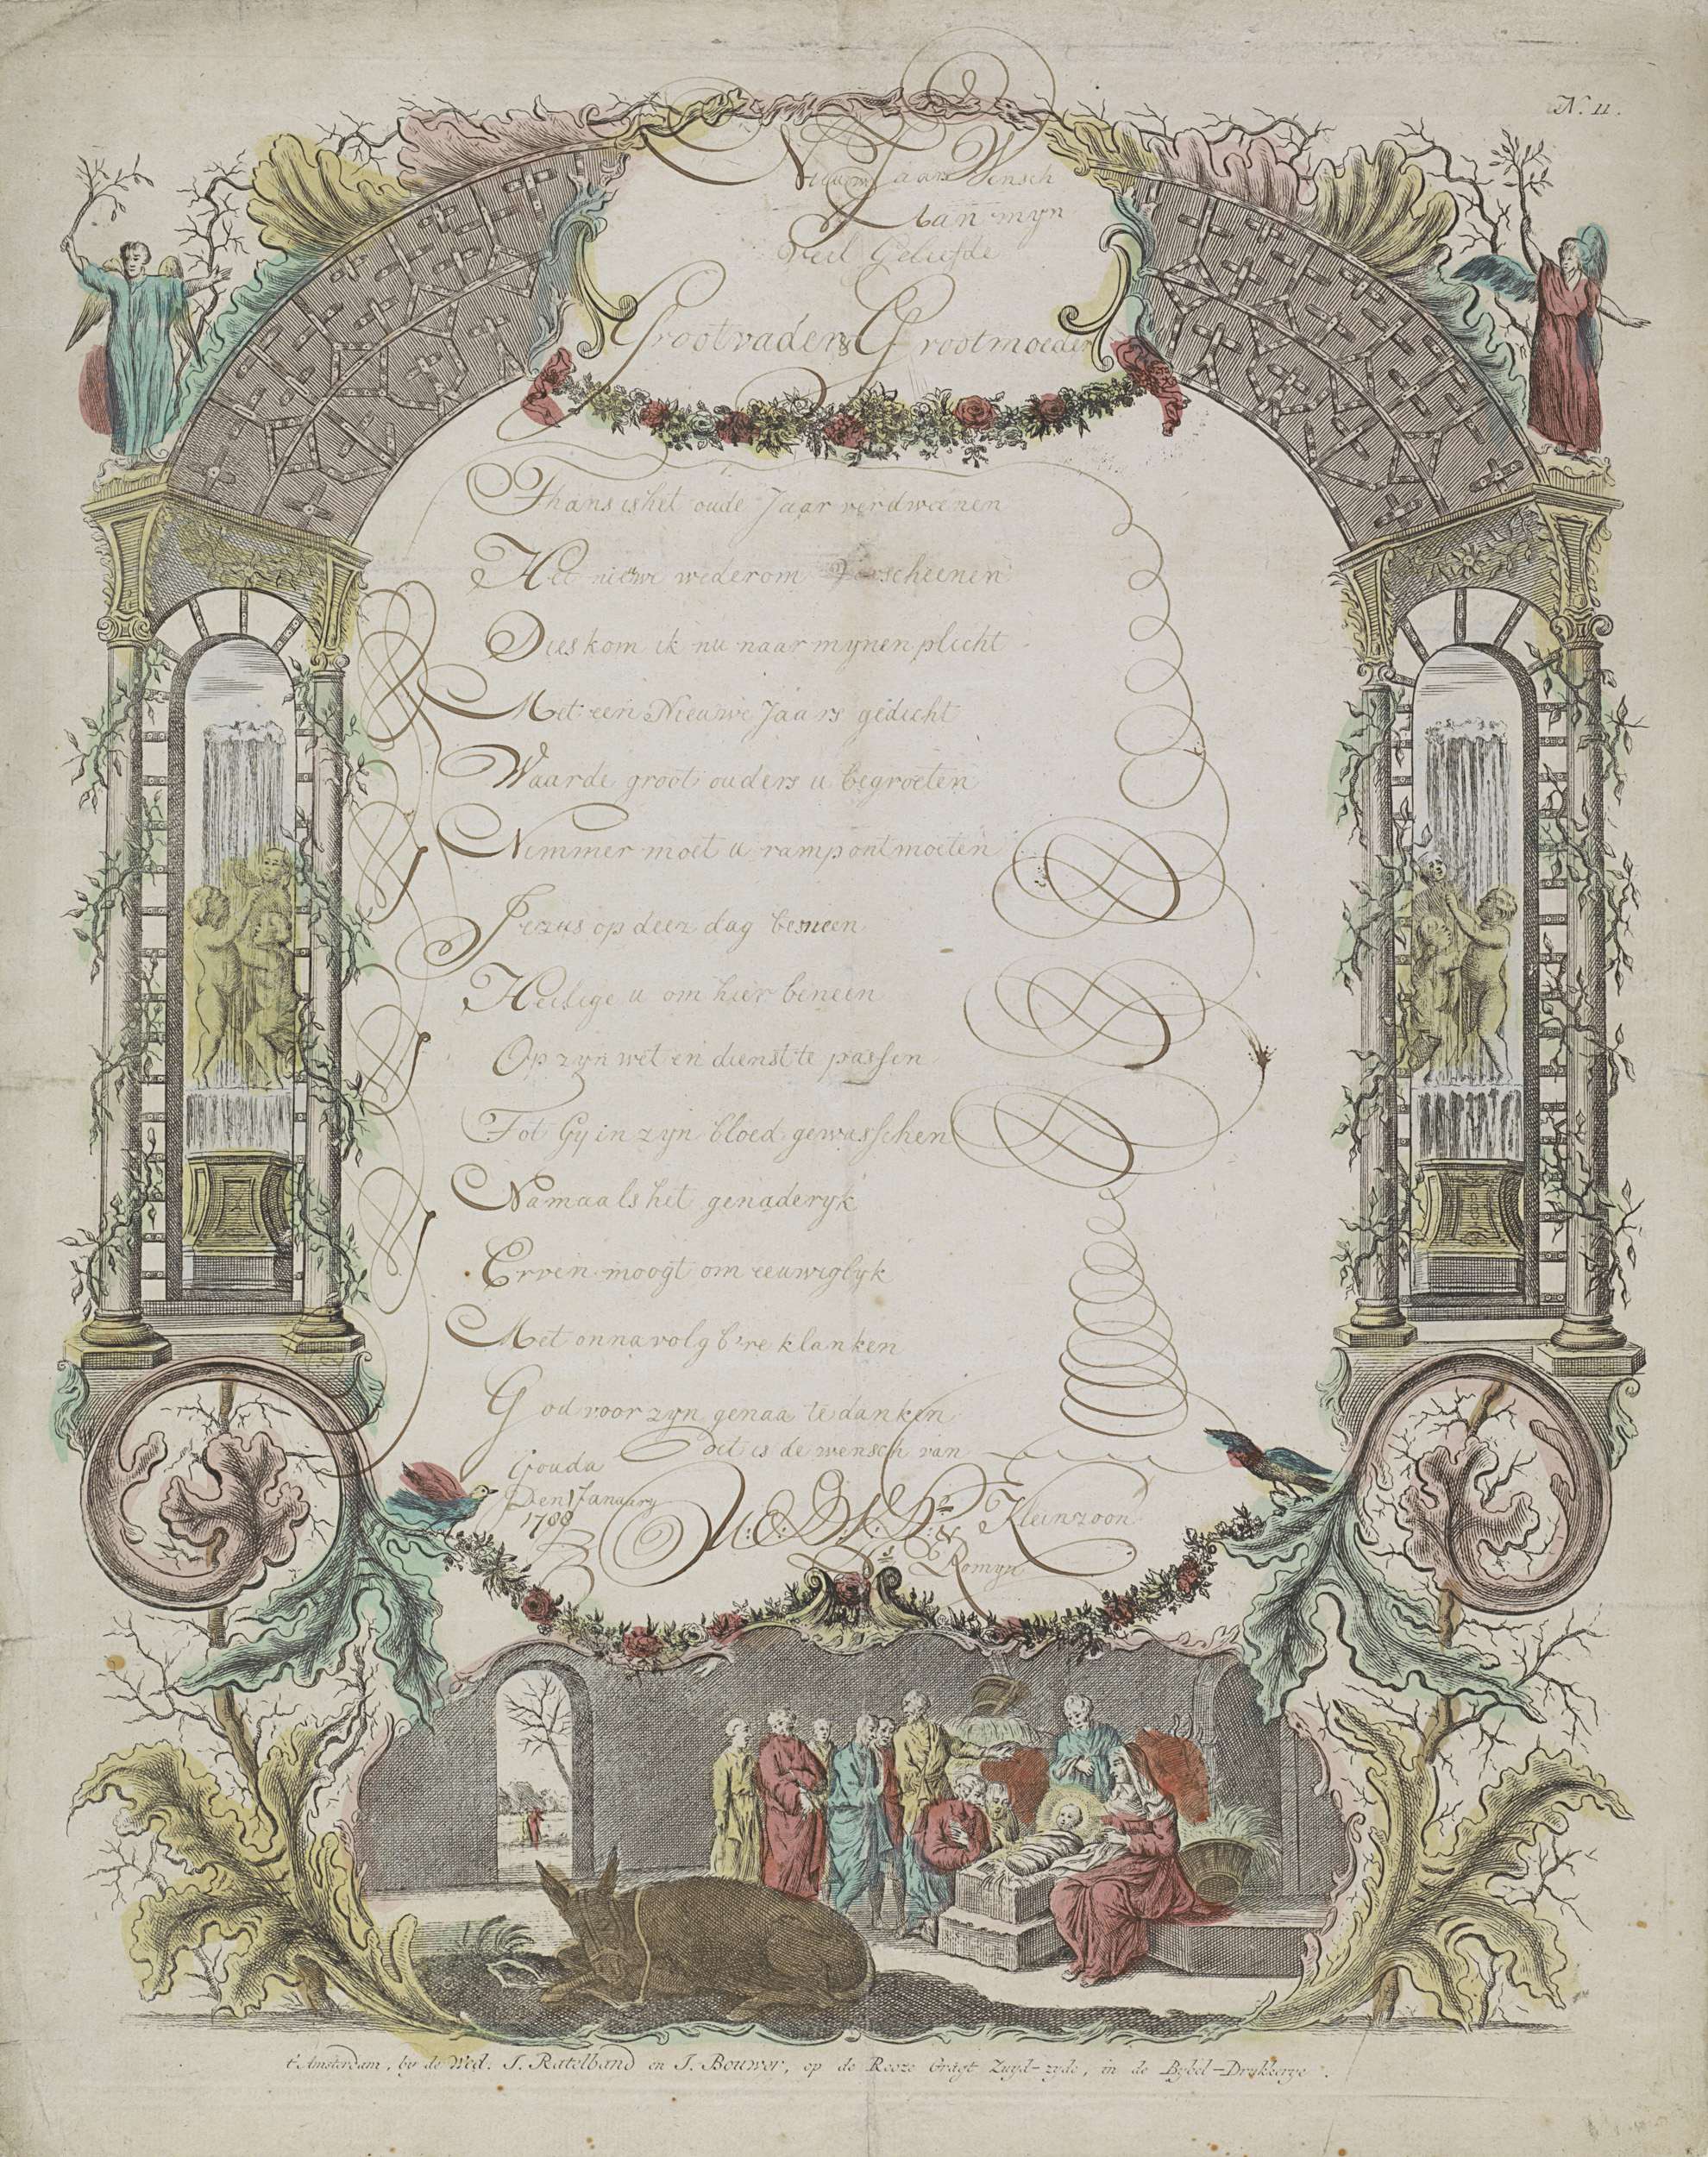 N. 11.
Nieuw Jaars Wensch
Aan myn
Veel Geliefde
Grootvader & Grootmoeder
Thans is het oude Jaar verdweenen
Het nieuwe wederom verscheenen
Dies kom ik nu naar mynen plicht
Met een Nieuwe Jaars gedicht
Waarde groot ouders u begroeten
Nimmer moet u ramp ontmoeten
Jezus op deez dag besneen
Heilige u om hier beneen
Op zyn wet en dienst te passen
Tot Gy in zyn bloed gewasschen
Namaals het genaderyk
Erven moogt om eeuwiglyk
Met onnavolgb're klanken
God voor zyn genaa te danken
dit is de wensch van
Gouda
Den 1 January
1788
Kleinzoon
Romyn
t'Amsterdam, by de Wed: J. Ratelband en J. Bouwer, op de Rooze Gragt Zuyd-zyde, in de Bybel-Drukkerye.